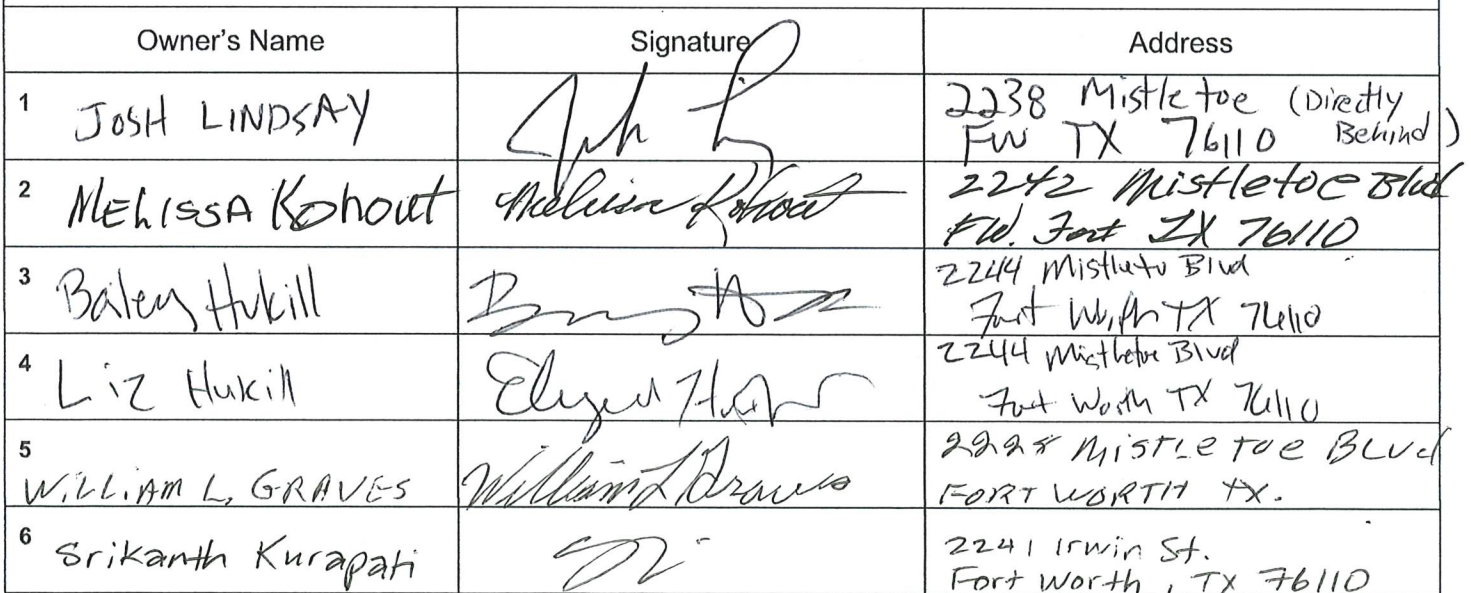 Owner's Name Signature Address
1 JOSH LINDSAY 2238 Mistletoe (Directly Behind)
FW TX 76110
2 MELISSA Kohout Melissa Kohout 2242 Mistletoe Blvd
FW. Fort TX 76110
3 Baley Hukill 2244 Mistleto Blvd
Fort Worth TX 76110
4 Liz Hukill 2244 Mistletoe Blvd
Fort Worth TX 76110
5 WILLIAM L. GRAVES William L Graves 2228 MISTLETOE BLVd
FORT WORTH TX.
6 Srikanth Kurapati 2241 Irwin St.
Fort Worth, TX 76110